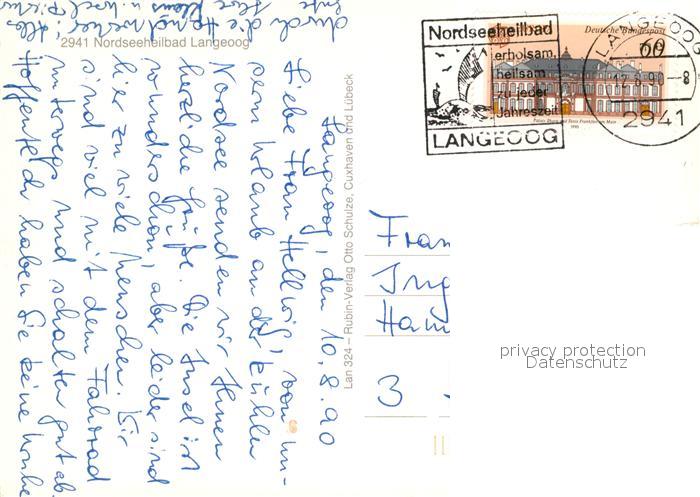 2941 Nordseeheilbad Langeoog
Langeoog, den 10.8.90
Liebe Frau Hellwig, von un-
serm Urlaub an der kühlen
Nordsee senden wir Ihnen
herzliche Grüße. Die Insel ist
wunderschön, aber leider sind
hier zu viele Menschen. Wir
sind viel mit dem Fahrrad
unterwegs und schalten gut ab.
Hoffentlich haben Sie keine
durch die Handwerker. Alles
Lan 324 – Rubin-Verlag Otto Schulze, Cuxhaven und Lübeck
Nordseeheilbad
erholsam
heilsam
zu jeder
Jahreszeit
LANGEOOG
Deutsche Bundespost
60
LANGEOOG
2941
Frau
Ing
Ham
3
privacy protection
Datenschutz